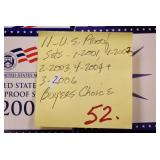 11-U.S. Proof
Sets - 1-2001, 1-2002,
2-2003, 4-2004 +
3-2006
Buyers Choice
52.
UNITED STATES MINT
PROOF SET
200